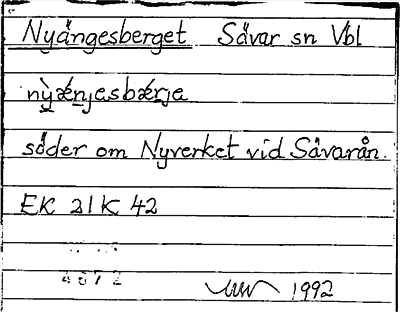 Nyängesberget Sävar sn Vbl
nỳǽnjəsbǽrjə
söder om Nyverket vid Sävarån.
EK 21K 42
1992